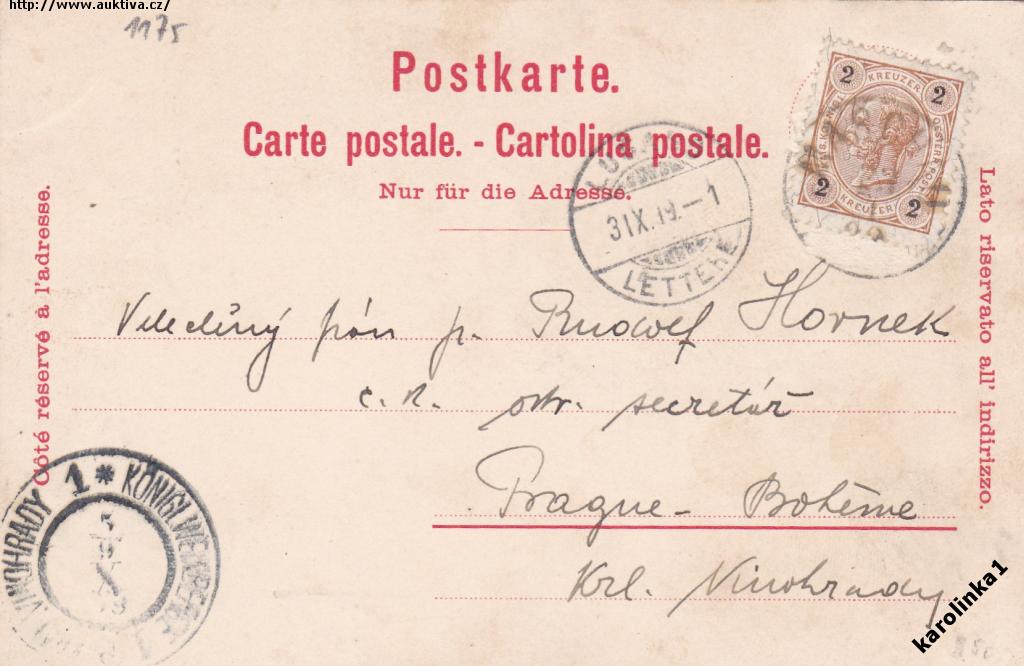 http://www.auktiva.cz/
1175
Postkarte.
Carte postale. - Cartolina postale.
Nur für die Adresse.
2 KREUZER 2
2 KREUZER 2
31X.19.-1
LETTERE
Côté réservé à l'adresse.
Lato riservato all' indirizzo.
Veledůný pán p. Rudolf Hornek
c. k. secretář
Prague - Bohême
Krl. Vinohrady
VINOHRADY 1 * KÖNIGL.
karolinka1